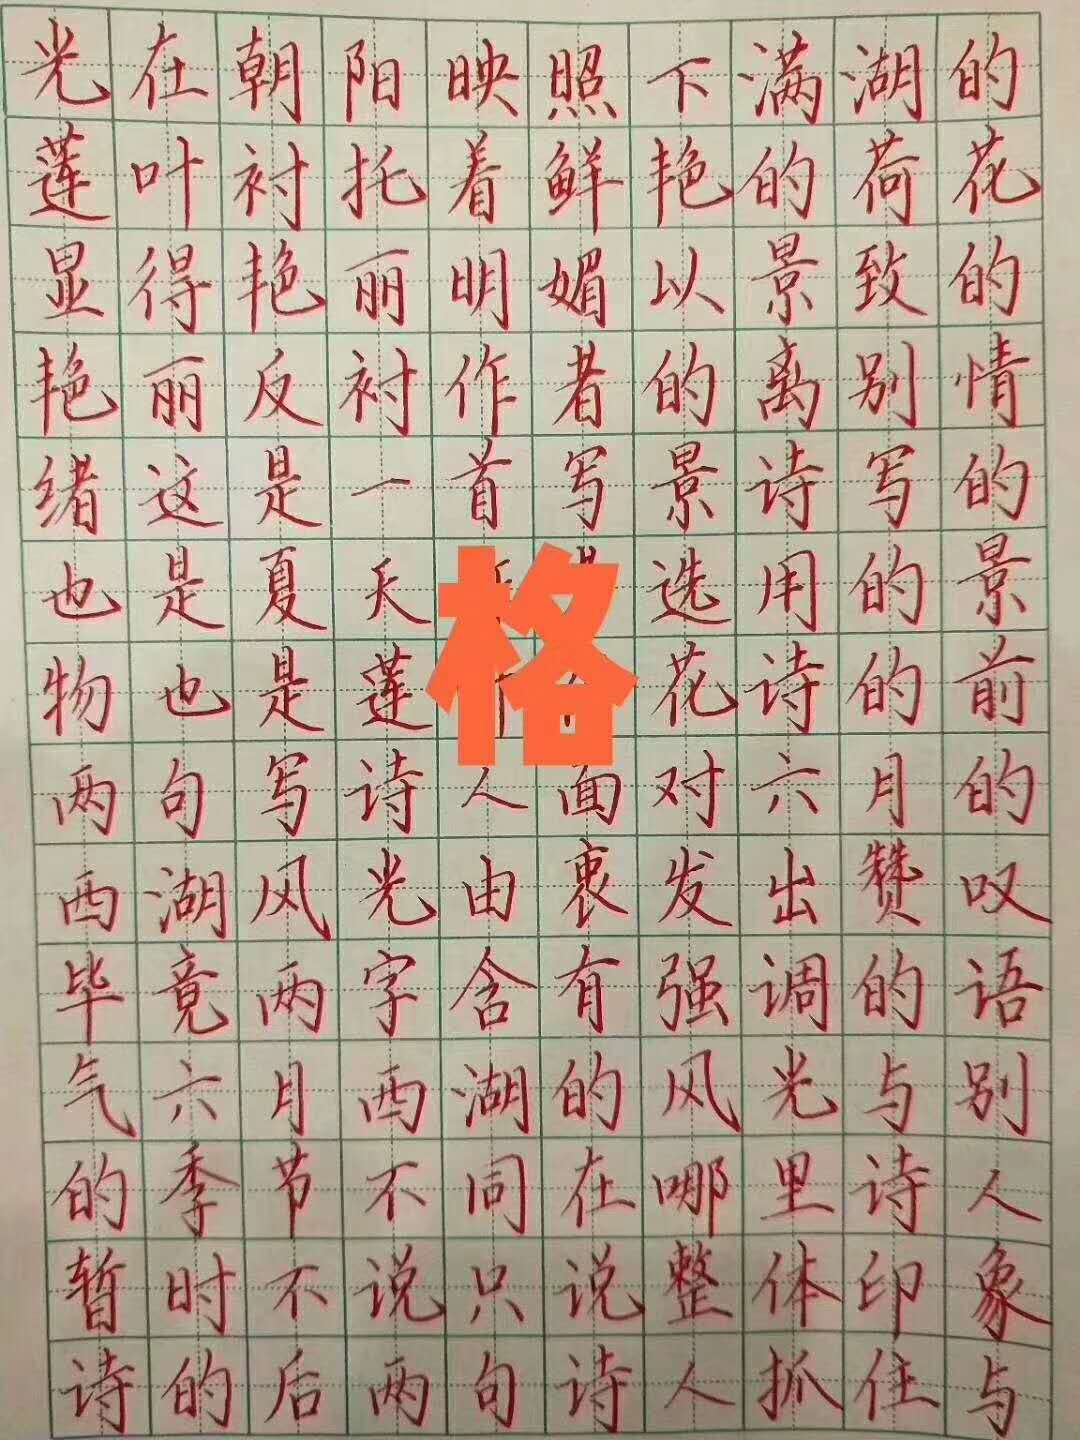 光在朝阳映照下满湖的
莲叶衬托着鲜艳的荷花
显得艳丽明媚以景致的
艳丽反衬作者的离别情
绪这是一首写景诗写的
也是夏天选用的景
物也是莲花诗的前
格
两句写诗人面对六月的
西湖风光由衷发出赞叹
毕竟两字含有强调的语
气六月西湖的风光与别
的季节不同在哪里诗人
暂时不说只说整体印象
诗的后两句诗人抓住与